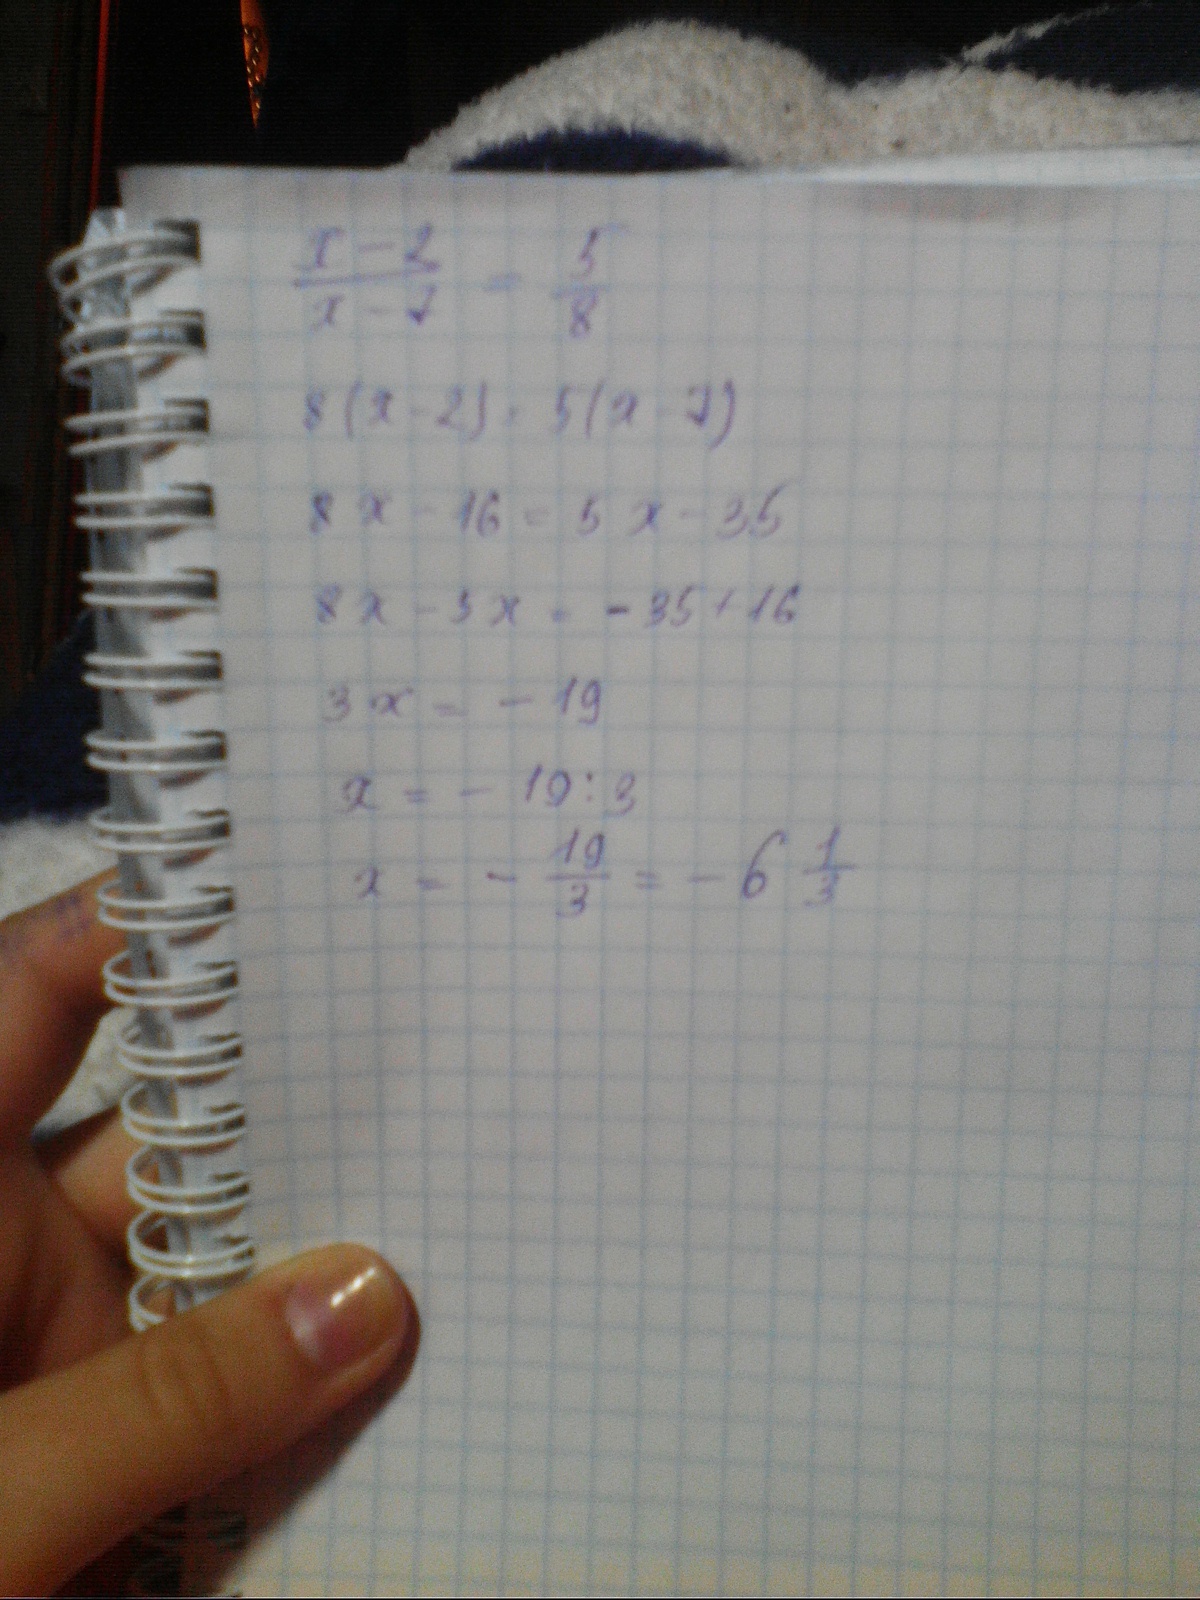 x-2/x-7 = 5/8
8(x-2) = 5(x-7)
8x-16 = 5x-35
8x-5x = -35+16
3x = -19
x = -19:3
x = -19/3 = -6 1/3